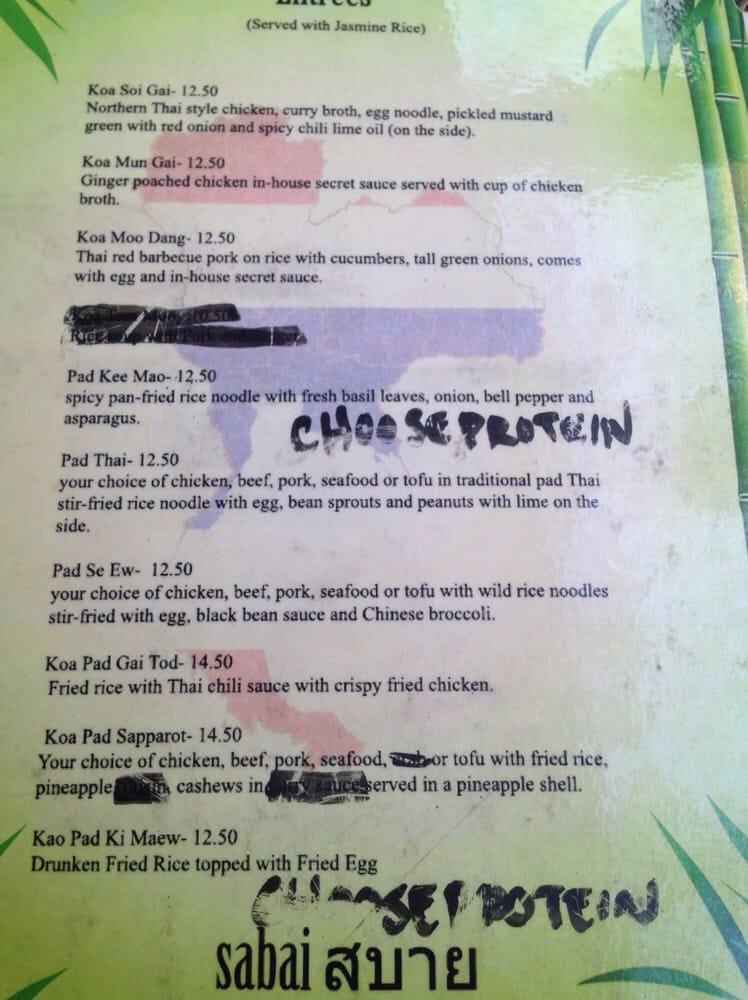 Entrees
(Served with Jasmine Rice)
Koa Soi Gai- 12.50
Northern Thai style chicken, curry broth, egg noodle, pickled mustard
green with red onion and spicy chili lime oil (on the side).
Koa Mun Gai- 12.50
Ginger poached chicken in-house secret sauce served with cup of chicken
broth.
Koa Moo Dang- 12.50
Thai red barbecue pork on rice with cucumbers, tall green onions, comes
with egg and in-house secret sauce.
10.50
Rice soup with Pork and Ginger
Pad Kee Mao- 12.50
spicy pan-fried rice noodle with fresh basil leaves, onion, bell pepper and
asparagus.
CHOOSE PROTEIN
Pad Thai- 12.50
your choice of chicken, beef, pork, seafood or tofu in traditional pad Thai
stir-fried rice noodle with egg, bean sprouts and peanuts with lime on the
side.
Pad Se Ew- 12.50
your choice of chicken, beef, pork, seafood or tofu with wild rice noodles
stir-fried with egg, black bean sauce and Chinese broccoli.
Koa Pad Gai Tod- 14.50
Fried rice with Thai chili sauce with crispy fried chicken.
Koa Pad Sapparot- 14.50
Your choice of chicken, beef, pork, seafood, or tofu with fried rice,
pineapple, cashews in curry sauce served in a pineapple shell.
Kao Pad Ki Maew- 12.50
Drunken Fried Rice topped with Fried Egg
CHOOSE PROTEIN
sabai สบาย